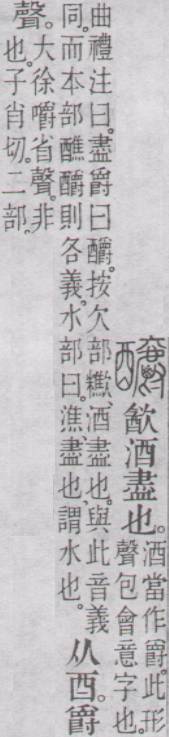 釂 㱃酒盡也。
酒當作爵。此形
聲包會意字也。
曲禮注曰。盡爵曰釂。按欠部𣤶、酒盡也。與此音義
同。而本部醮釂則各義。水部曰。潐、盡也。謂水也。
从酉。爵
聲。
大徐嚼省聲。非
也。子肖切。二部。